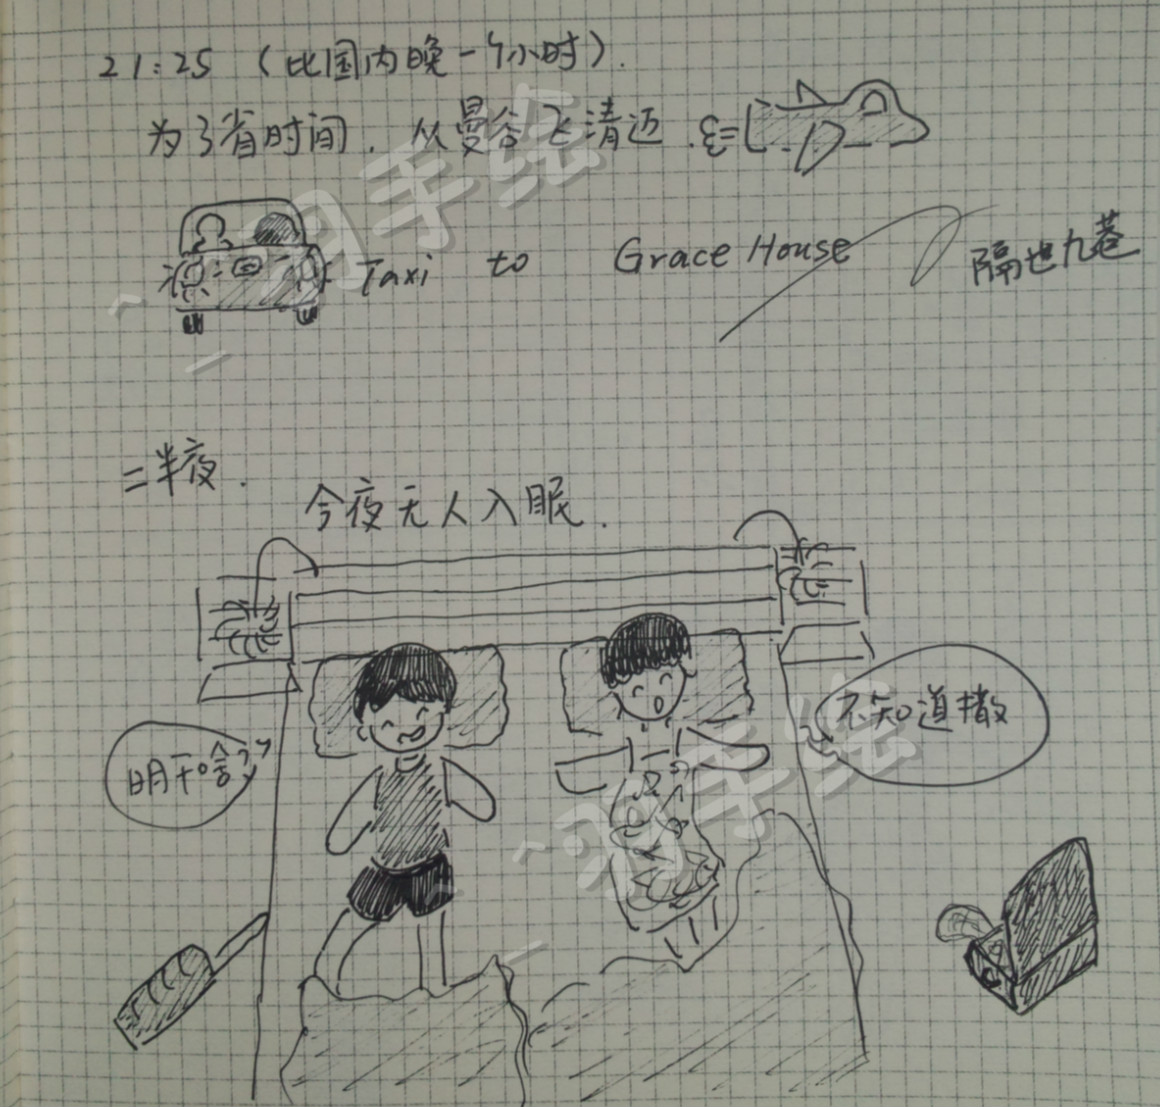 21:25 (比国内晚一个小时).
为了省时间,从曼谷飞清迈.
Taxi to Grace House 隔也九巷
二半夜.
今夜无人入眠.
明干啥??
不知道撒
羽手绘
羽手绘